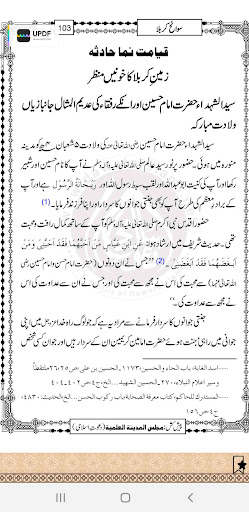 UPDF
103
سوانح کربلا
قیامت نما حادثہ
زمینِ کربلا کا خونیں منظر
سید الشہداء حضرت امام حسین اور انکے رفقاء کی عدیم المثال جانبازیاں
ولادت مبارکہ
سید الشہداء حضرت امام حسین رضی اللہ تعالیٰ عنہ کی ولادت ۵ شعبان ۴ھ کو مدینہ
منورہ میں ہوئی۔ حضور پرنور سید عالم صلی اللہ تعالیٰ علیہ وآلہ وسلم نے آپ کا نام حسین اور شبیر
رکھا اور آپ کی کنیت ابو عبد اللہ اور لقب سبط رسول اللہ اور رَیْحَانَۃُ الرَّسُوْل ہے اور آپ
کے برادر معظم کی طرح آپ کو بھی جنتی جوانوں کا سردار اور اپنا فرزند فرمایا۔ (1)
حضور اقدس نبی اکرم صلی اللہ تعالیٰ علیہ وآلہ وسلم کو آپ کے ساتھ کمال رافت و محبت
تھی۔ حدیث شریف میں ارشاد ہوا: مَنْ اَحَبَّهُمَا فَقَدْ اَحَبَّنِیْ وَمَنْ
اَبْغَضَهُمَا فَقَدْ اَبْغَضَنِیْ۔ (2) ”جس نے ان دونوں (حضرت امام حسن و امام حسین رضی
اللہ تعالیٰ عنہما) سے محبت کی اس نے مجھ سے محبت کی اور جس نے ان سے عداوت کی اس
نے مجھ سے عداوت کی۔“
جنتی جوانوں کا سردار فرمانے سے مراد یہ ہے کہ جو لوگ راہ خدا عزوجل میں اپنی
جوانی میں راہی جنت ہوئے حضرت امامین کریمین ان کے سردار ہیں اور جوان کسی
1.....اسد الغابة، باب الحاء والحسین، ۱۱۷۳۔الحسین بن علی، ج۲، ص۲۵،۲۶ملتقطاً
و سیر اعلام النبلاء، ۲۷۰۔الحسین الشهید...الخ، ج۴، ص۴۰۲۔۴۰۴
2.....المستدرك للحاکم، کتاب معرفة الصحابة، باب رکوب الحسن...الخ، الحدیث: ۴۸۳۰،
ج۴، ص۱۵۶
پیش کش: مجلس المدینۃ العلمیۃ (دعوت اسلامی)